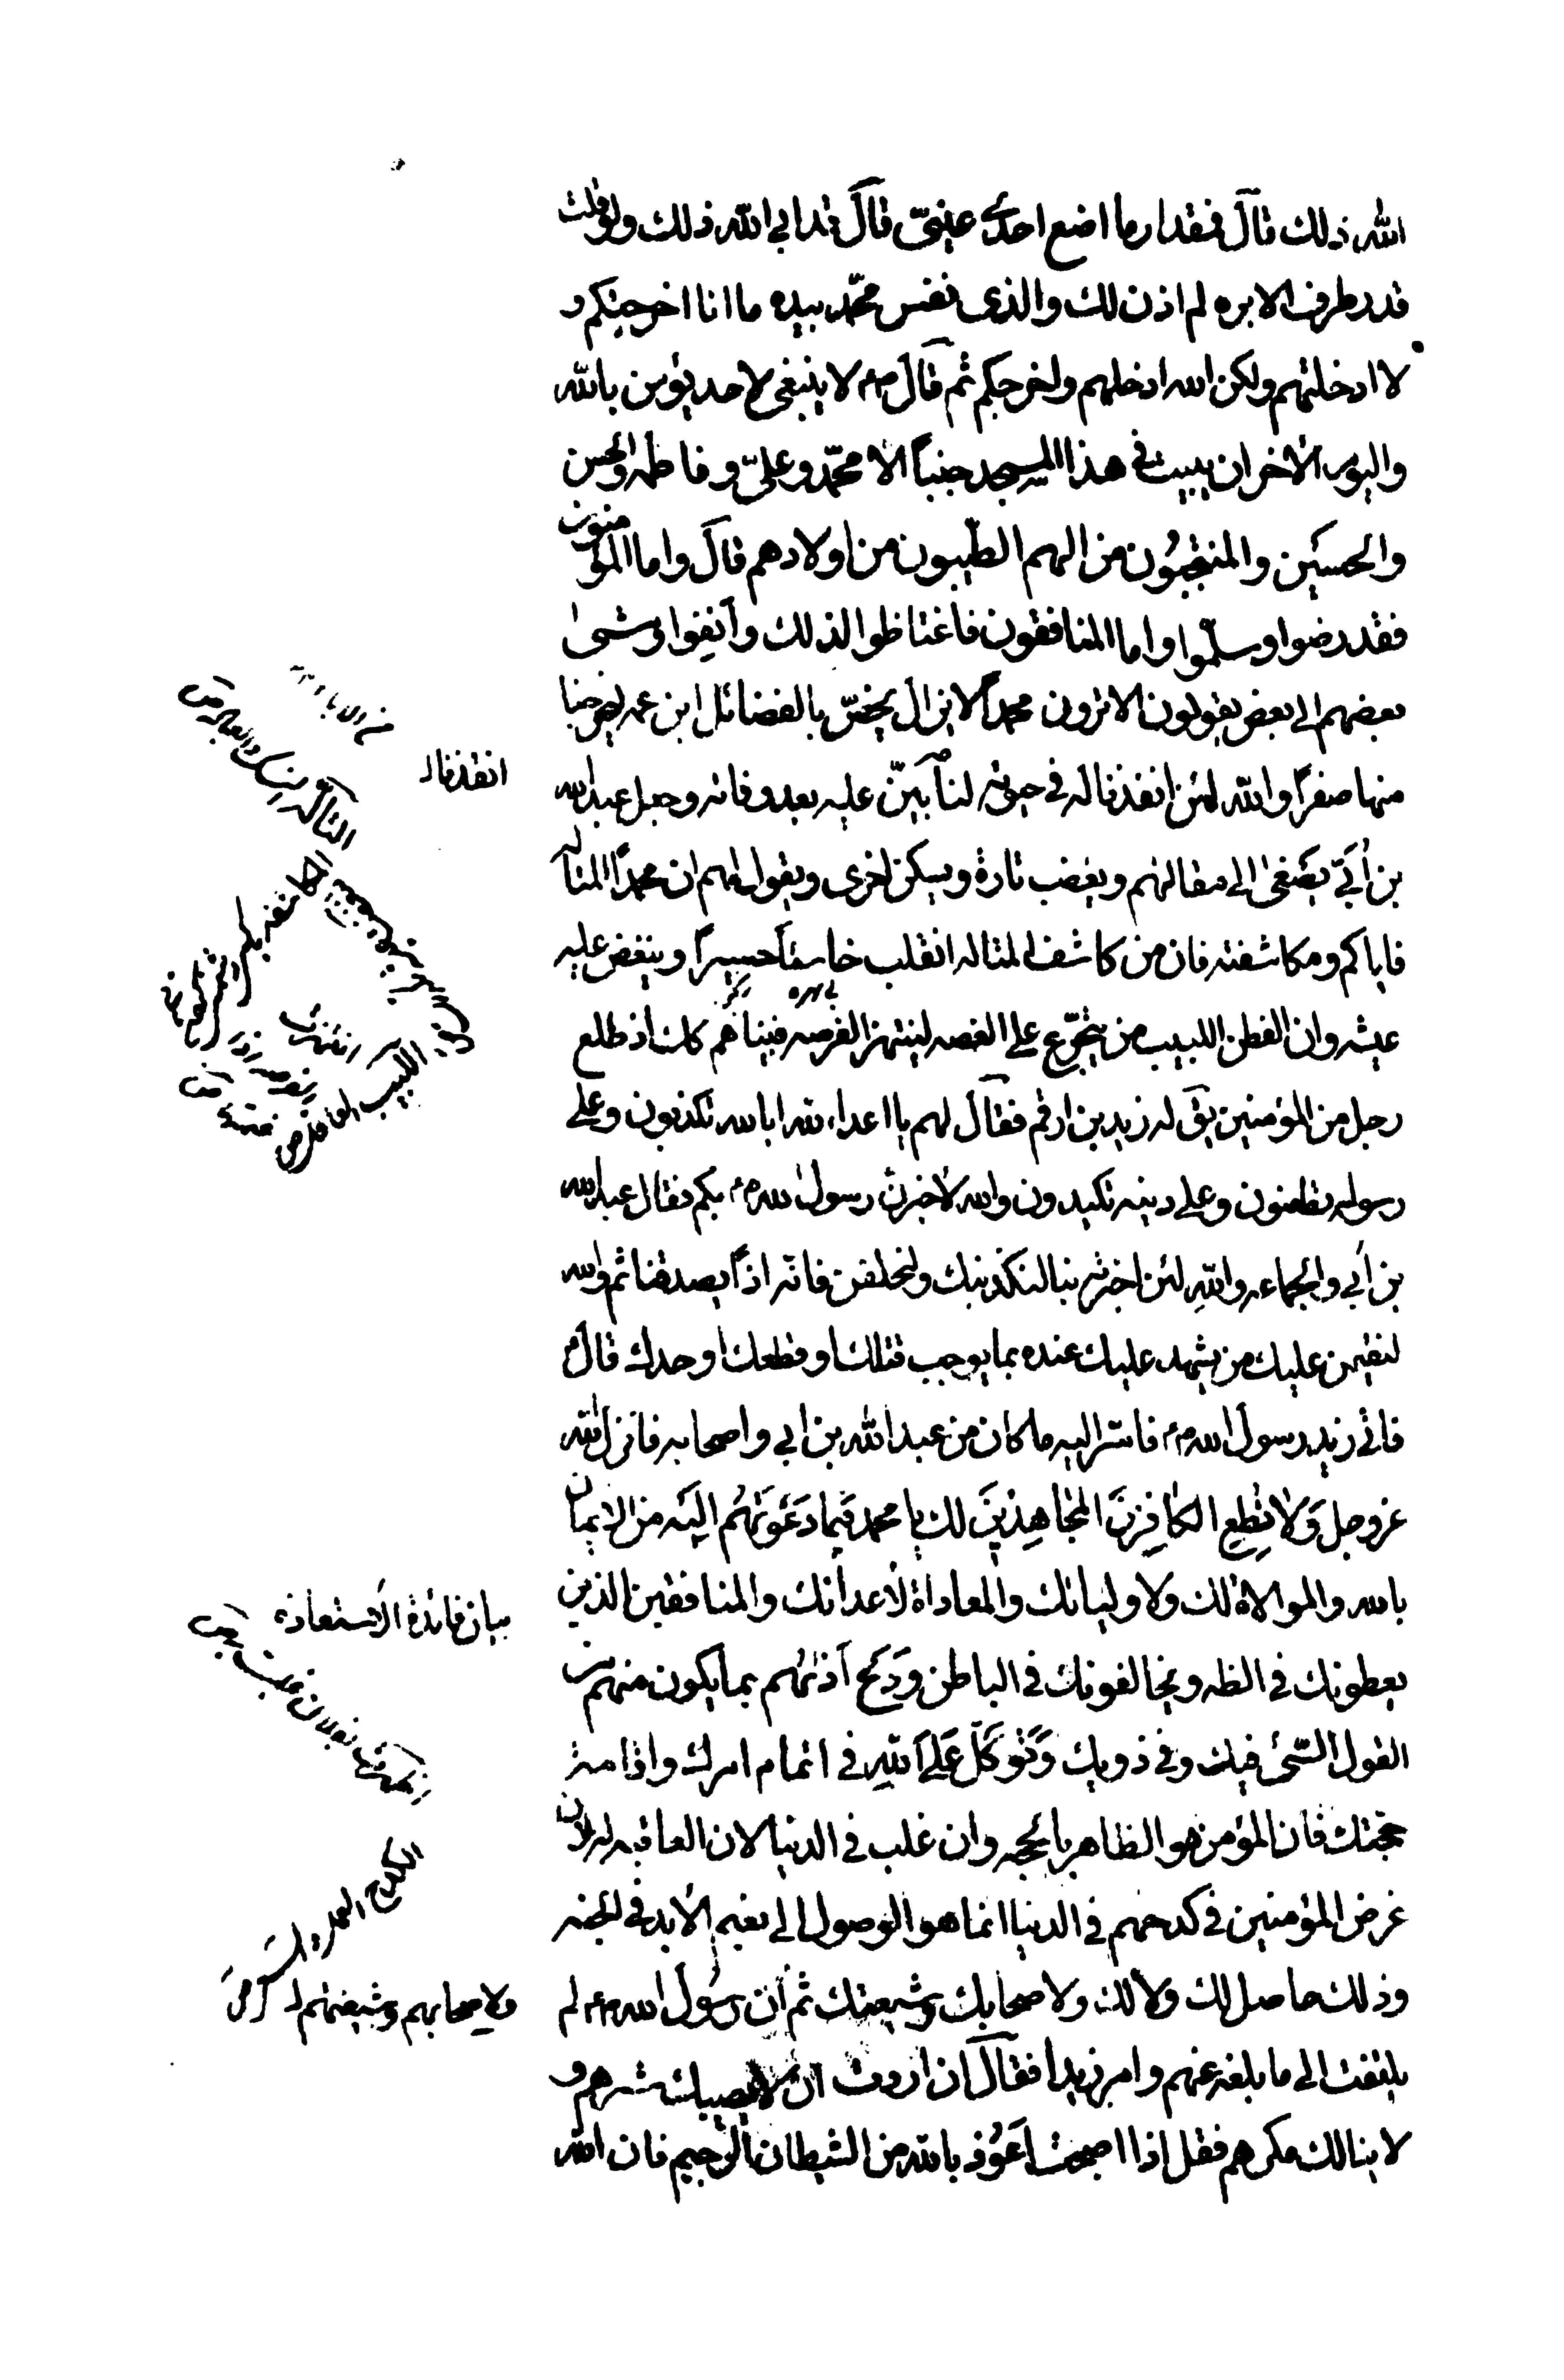 الله ذلك قال فمقدار ما اضع احدى عينىّ قال قد ابى الله ذلك ولو قلت
قدر طرف الابره لم اذن لك والذى نفس محمّد بيده ما انا اخرجتكم و
لا ادخلتهم ولكن الله ادخلهم واخرجكم ثم قال ص لا ينبغى لاحد يؤمن بالله
واليوم الاخر ان يبيت فى هذا المسجد جنباً الا محمّد وعلىّ وفاطمه والحسن
والحسين والمنتجبُون من الهم الطيبون من اولادهم قال واما المؤمنون
فقد رضوا وسلّموا واما المنافقون فاغتاظوا لذلك وأنِفوا ومشى
بعضهم الى بعض يقولون الا ترون محمداً لا يزال يخصّ بالفضائل ابن عمه ليخرجنا
منها صفراً والله لئن انفذنا له فى حيوته لنأبينّ عليه بعد وفاته وجعل عبدالله
بن أبىّ يصغى الى مقالتهم ويغضب تارة ويسكن اخرى ويقول لهم ان محمداً المتأله
فاياكم ومكاشفته فان من كاشف المتاله انقلب خاسئاً حسيراً وينغض عليه
عيشه وان الفطن اللبيب من يتجرّع على الغصه لينتهز الفرصه فبيناهم كذلك اذ طلع
رجل من المؤمنين يق له زيد بن ارقم فقال لهم يا اعداء الله ابالله تكذبون وعلى
رسوله تطعنون وعلى دينه تكيدون والله لاخبرن رسول الله ص بكم فقال عبدالله
بن أبى والجماعه والله لئن اخبرته بنا لنكذبنك ولنحلفن فانه اذاً يصدقنا ثم والله
لنقيمن عليك من يشهد عليك عنده بما يوجب قتلك او قطعك او حدك قال
فاتى زيد رسول الله ص فاسّر اليه ما كان من عبدالله بن ابى واصحابه فانزل الله
عز وجل وَلا تُطِعِ الكافِرينَ المجاهِدينَ لك يا محمد فيما دَعَوتَهُم اليَه من الايمان
بالله والموالاة لك ولاوليائك والمعاداة لأعدائك والمنافقين الذين
يطيعونك فى الظه ويخالفونك فى الباطن وَدَع أذهُم بما يكون منهم من
القول السّىئ فيك وفى ذويك وَتَوكّل عَلَى اللهِ فى اتمام امرك واقامة
حجتك فان المؤمن هو الظاهر بالحجه وان غلب فى الدنيا لان العاقبه له لان
غرض المؤمنين فى كدحهم فى الدنيا انما هو الوصول الى نعيم الأبد فى الجنه
وذلك حاصل لك ولالك ولاصحابك وشيعتك ثم أن رسُول الله ص لم
يلتفت الى ما بلغه عنهم وامر زيدا فقال ان اردت ان لا يصيبك شرهم و
لا ينالك مكرهم فقل اذا اصبحت اعُوذ بالله من الشيطان الرّجيم فان الله
انقذنا له
بى بهره
التأله
اللبيب العاقل ص
بيان فائدة الاستعاذه
الكدح العمل و السعى
ولاصحابهم وشيعتهم